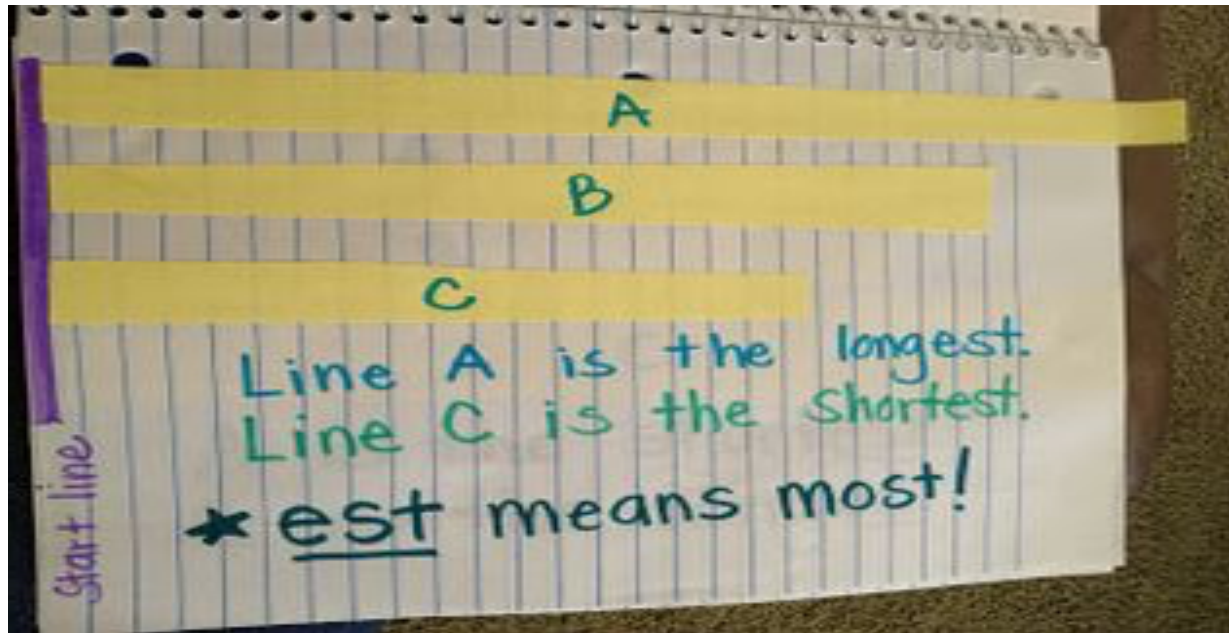 A
B
C
Line A is the longest.
Line C is the shortest.
★ est means most!
start line